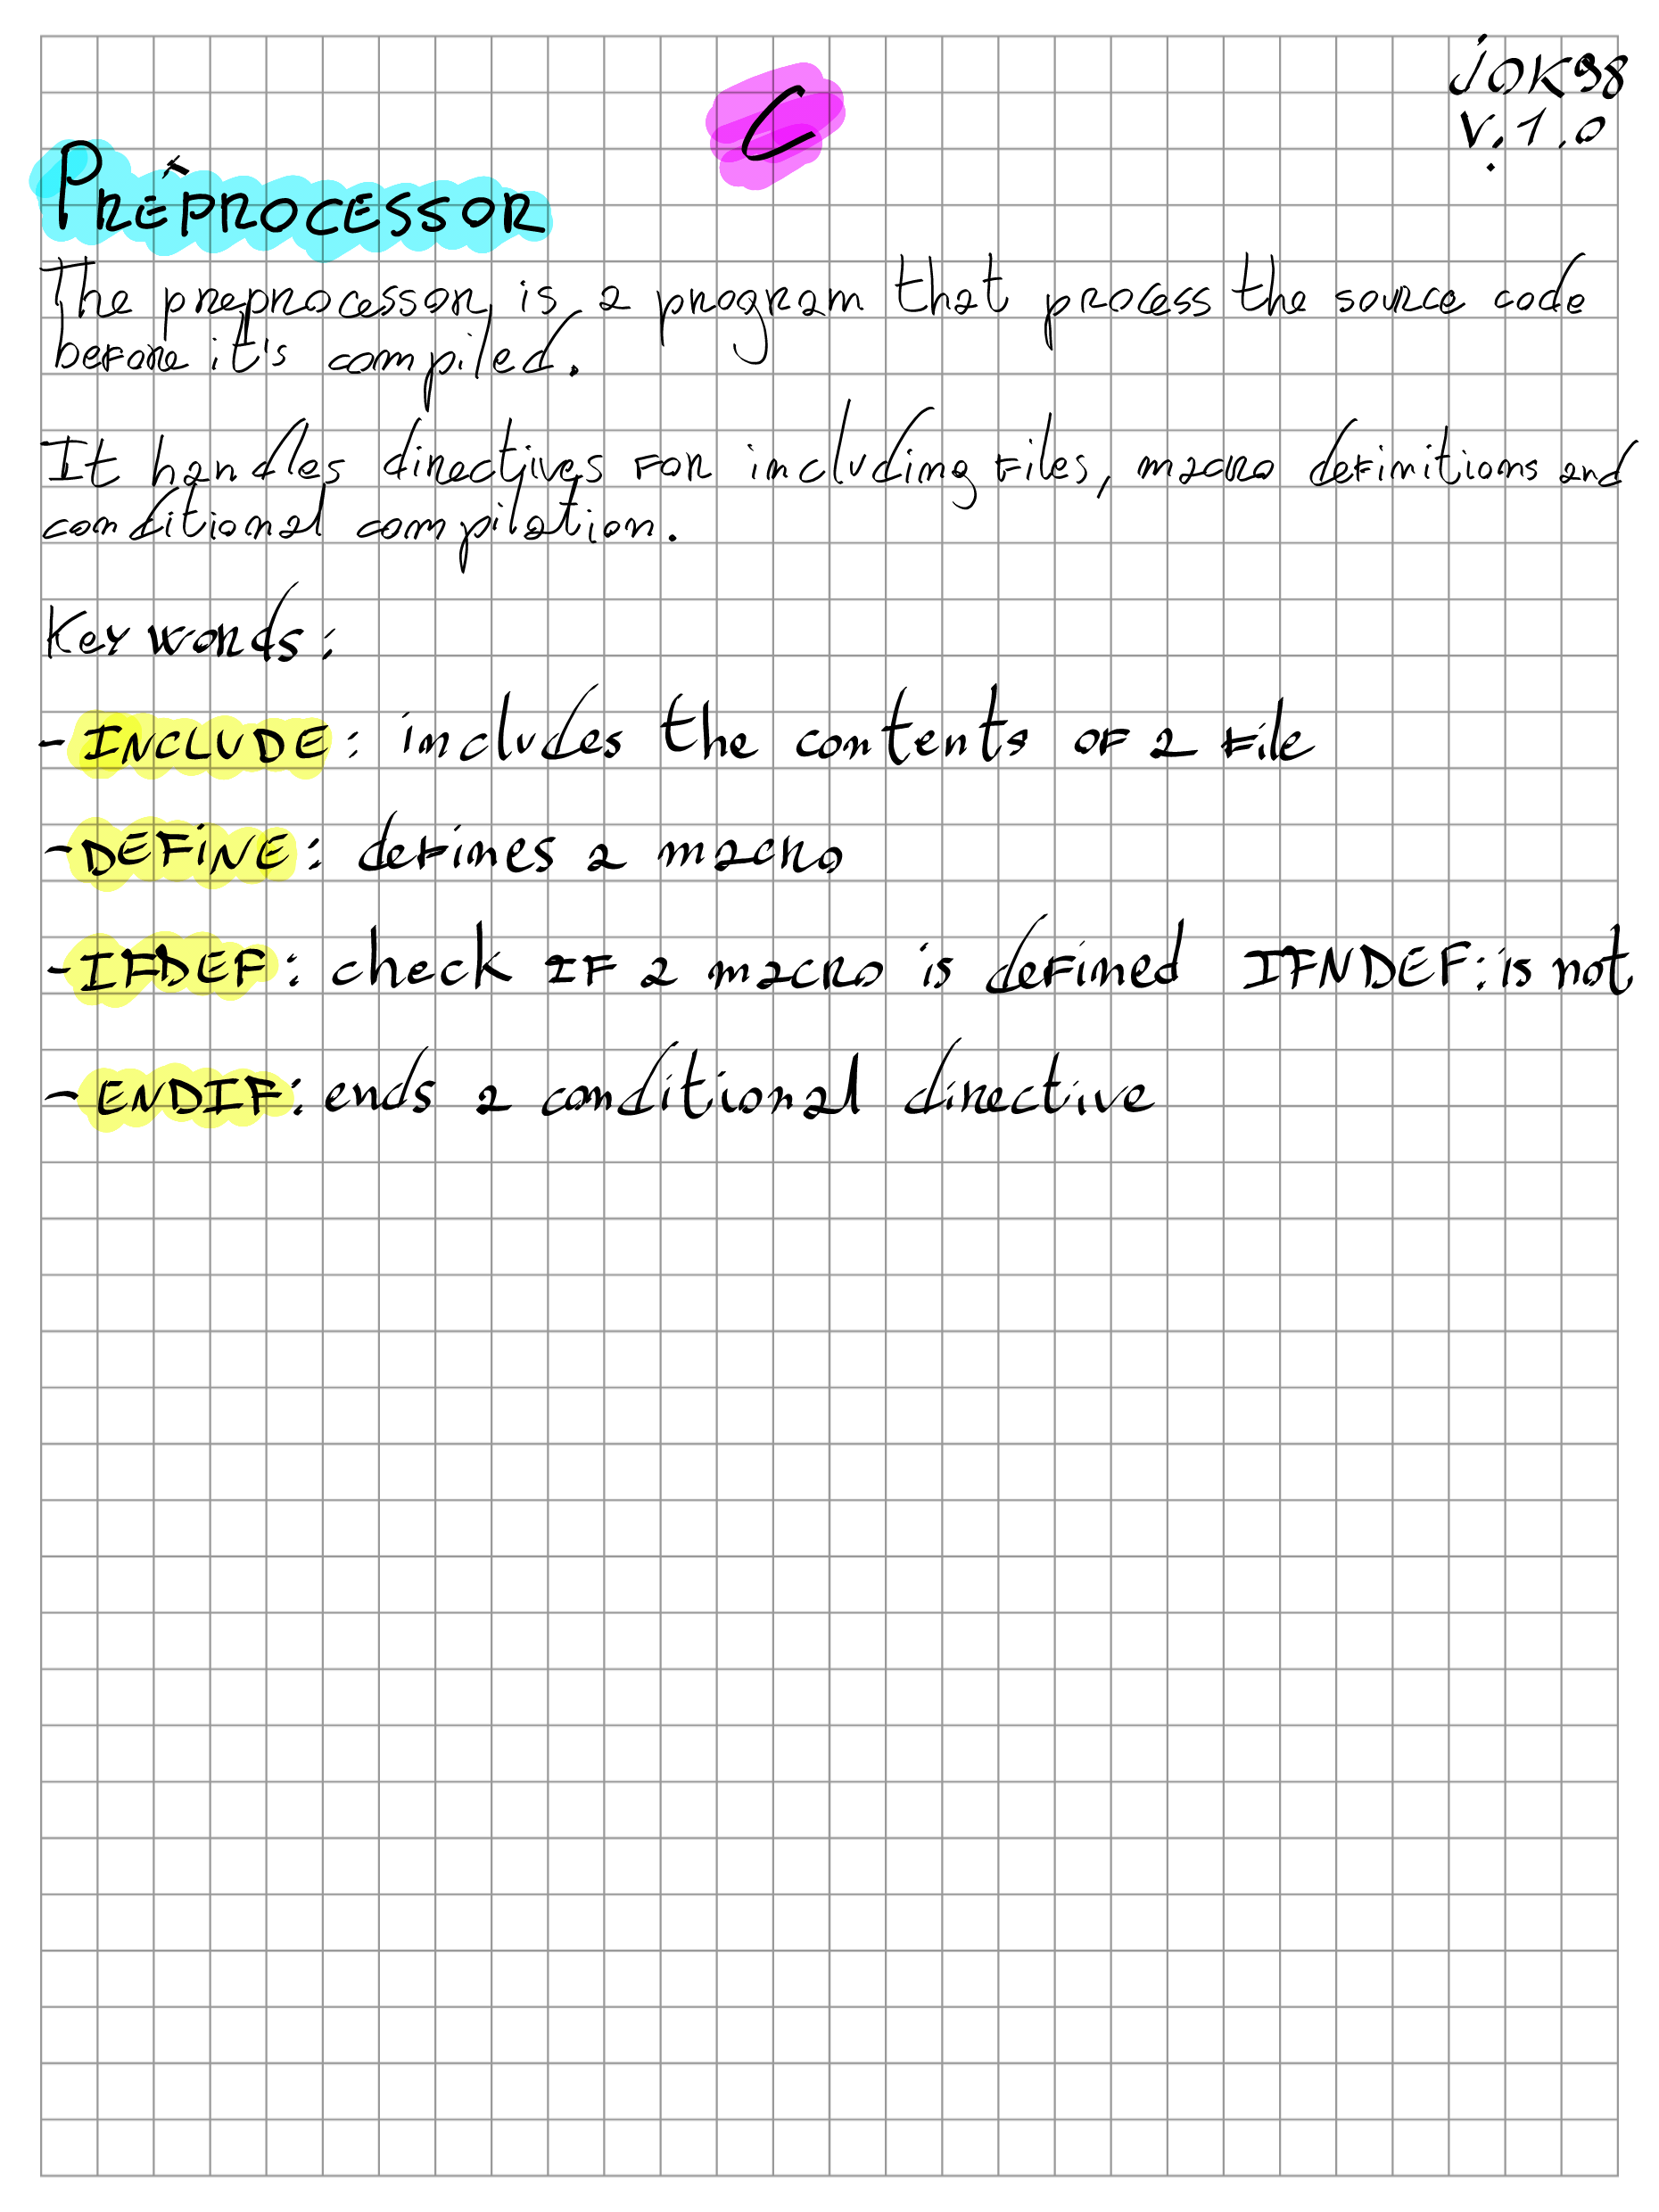 jOK98
C
V.1.0
PREPROCESSOR
The preprocessor is a program that process the source code
before it's compiled.
It handles directives for including files, macro definitions and
conditional compilation.
Keywords:
- INCLUDE: includes the contents of a file
- DEFINE: defines a macro
- IFDEF: check if a macro is defined IFNDEF: is not
- ENDIF: ends a conditional directive